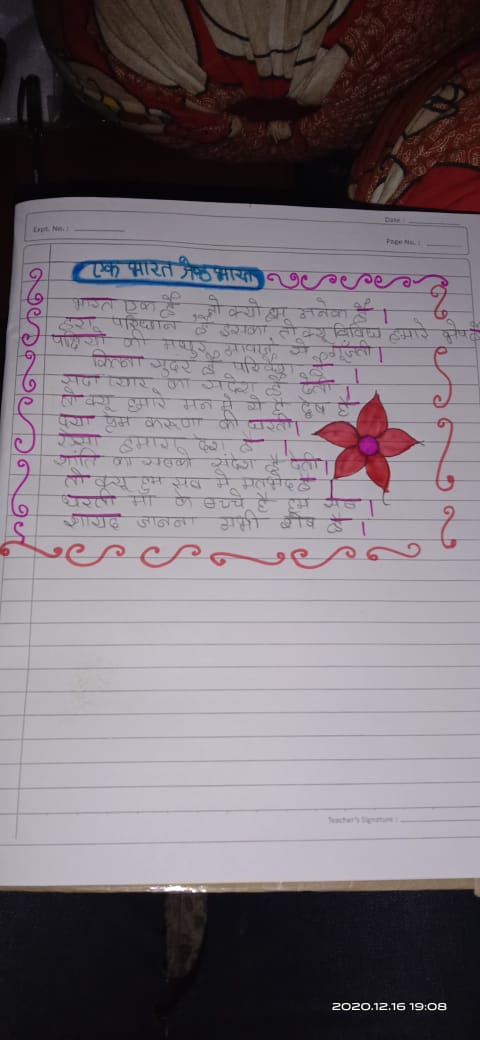 Date :
Expt. No. :
Page No. :
एक भारत श्रेष्ठ भारत
भारत एक है तो क्यों हम अनेक है।
परिधान है इसका तो क्यू विविध हमारे
की मधुर आवाज से गूँजती।
कितना सुंदर है परिवेश है।
सदा प्यार का संदेश है देती।
तो क्यू हमारे मन में ये द्वेष है।
दया प्रेम करुणा की धरती।
ऐसा हमारा देश है।
शांति का सबको संदेश है देती।
तो क्यू हम सब में मतभेद है।
धरती माँ के बच्चे है हम सब।
शायद जानना अभी शेष है।
Teacher's Signature :
2020.12.16 19:08